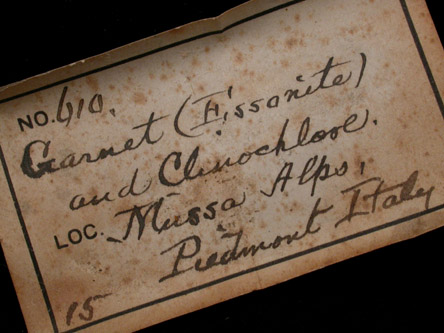 NO. 610.
Garnet (Essonite)
and Clinochlore.
LOC. Mussa Alps,
Piedmont Italy
15